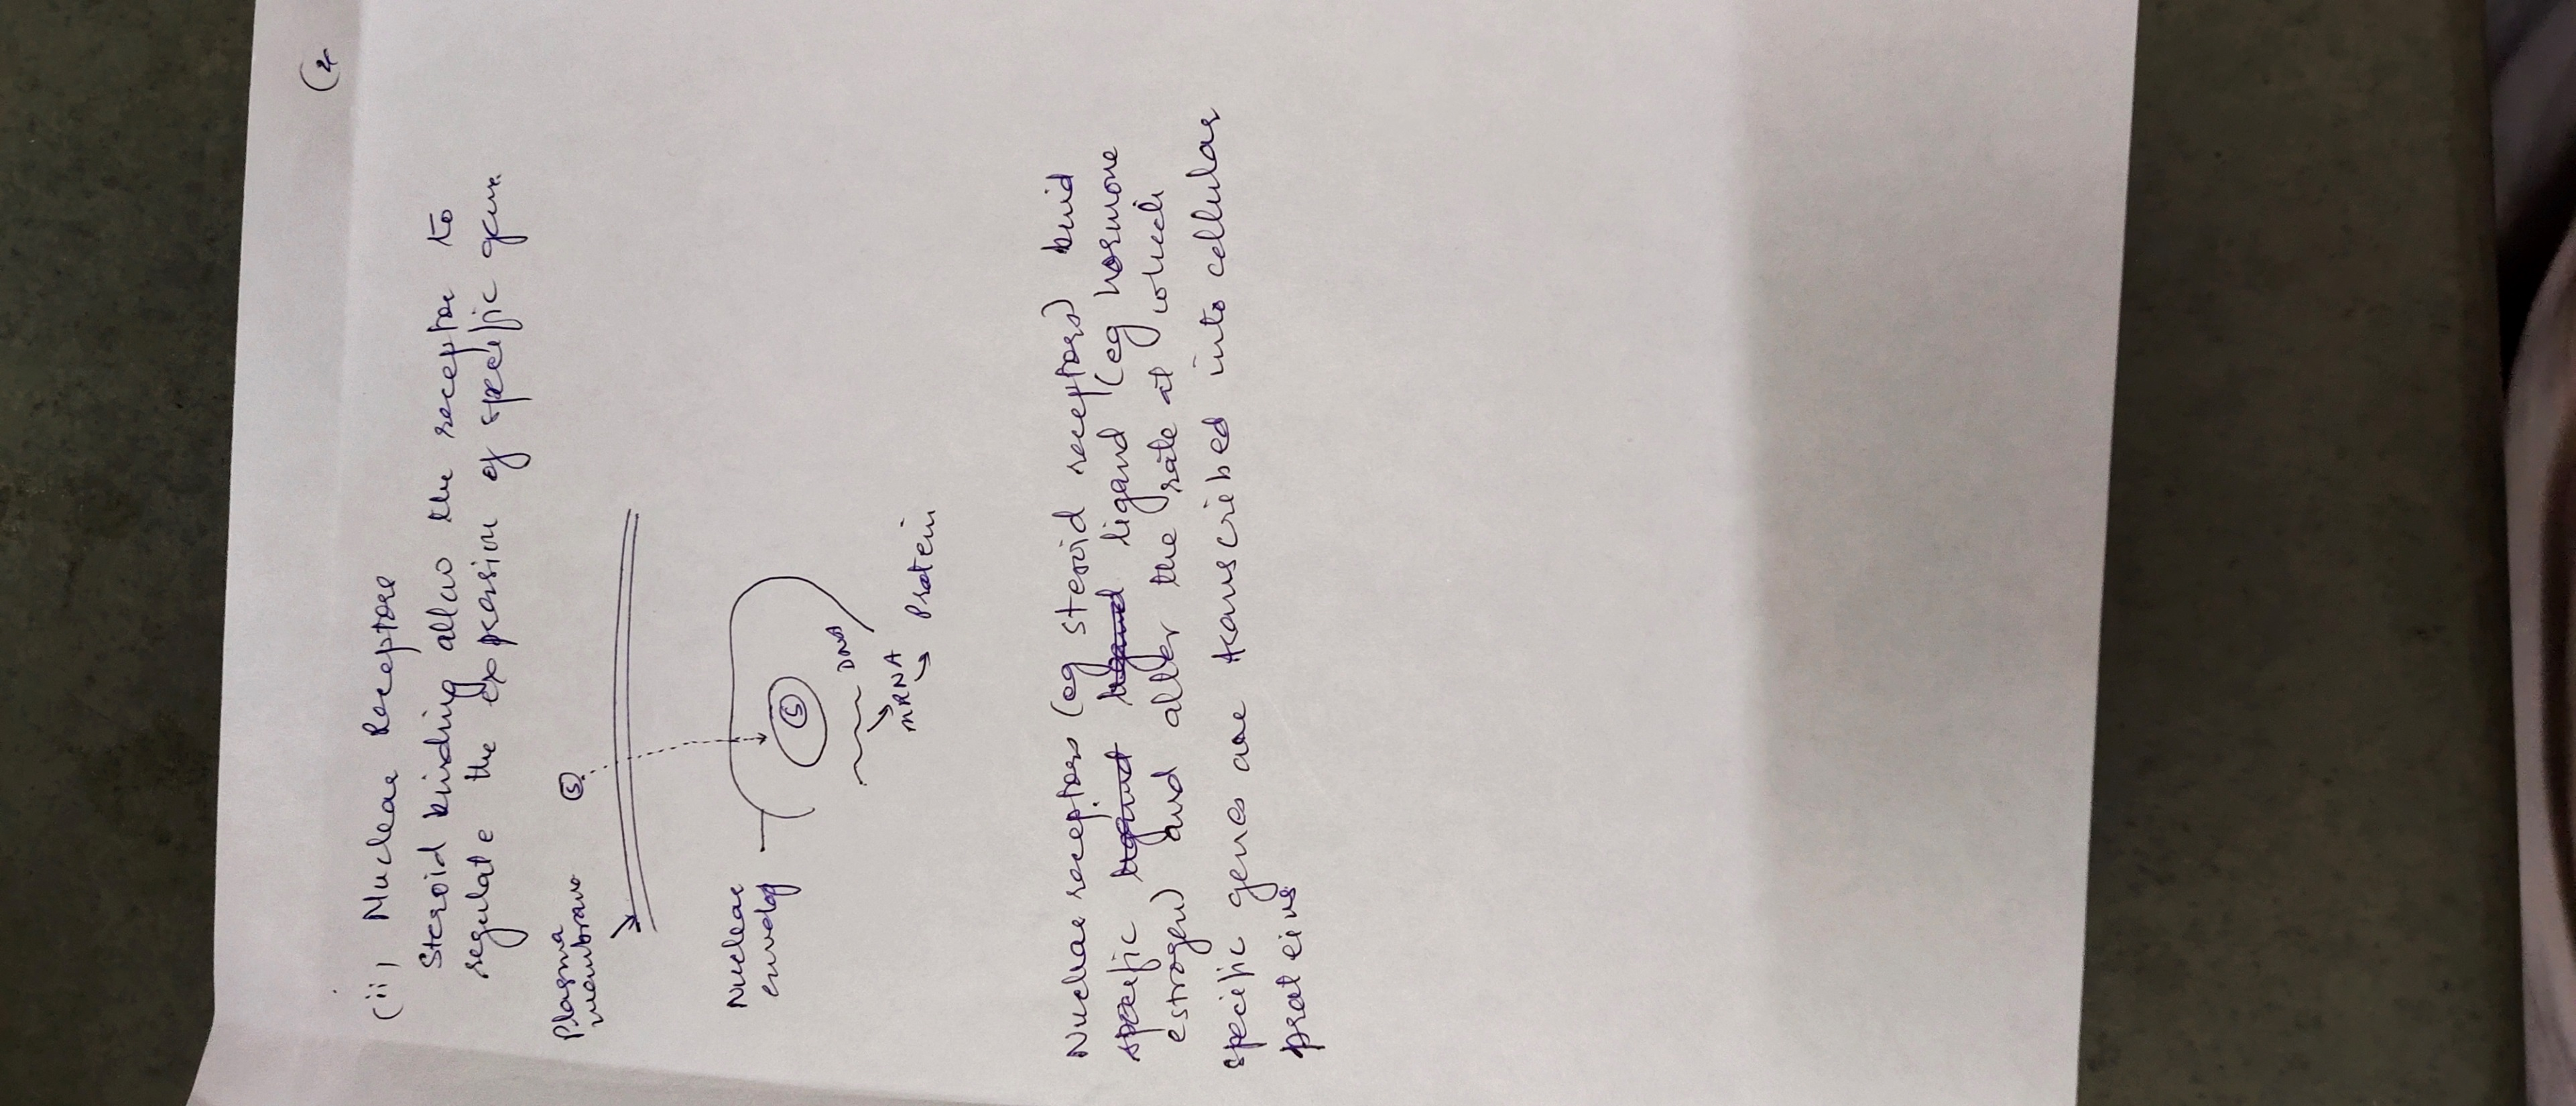 (ii) Nuclear Receptore
Steroid binding allow the receptor to
regulate the expression of specific gene.
Plasma
membrane
S
Nuclear
envelop
S
DNA
mRNA
Protein
Nuclear receptors (eg steroid receptors) bind
specific ligand (eg hormone
estrogen) and alter the rate at which
specific genes are transcribed into cellular
proteins